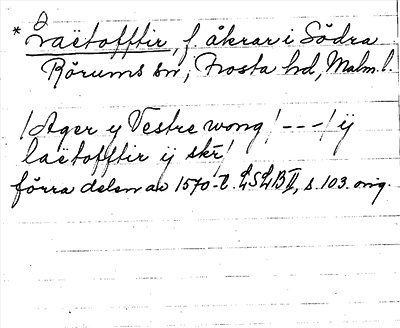 * Laëtofftir, f. åkrar i Södra
Rörums sn, Frosta hd, Malm. l.
/Ager y Vestre wong/ - - - / ij
laëtofftir ij skr/
förra delen av 1570-t. LSLB II, s. 103. orig.